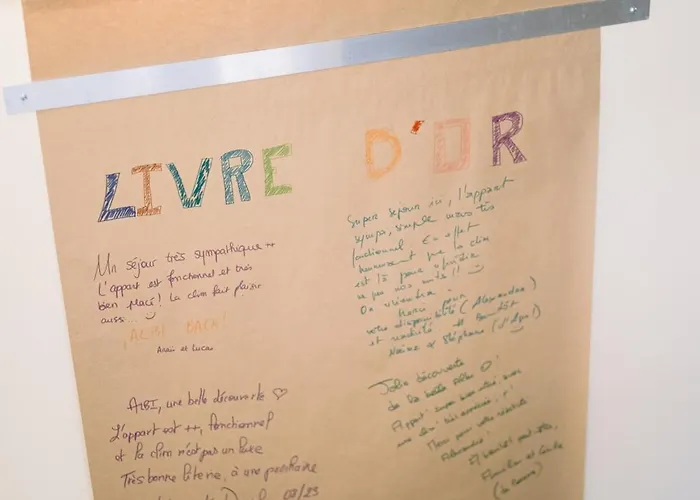 LIVRE D'OR
Un séjour très sympathique ++
L'appart est fonctionnel et très
bien placé! La clim fait plaisir
aussi... :)
¡ALBI BACK!
Anaïs et Lucas
ALBI, une belle découverte ♡
L'appart est ++, fonctionnel
et la clim n'est pas un luxe
Très bonne literie, à une prochaine
02/23
Super séjour ici, l'appart
sympa, simple mais très
fonctionnel. En effet
heureusement que la clim
est là pour
nos nuits!! :)
On reviendra
Merci pour
votre disponibilité (Alexandra)
et réactivité. A bientôt
et Stéphane
Jolie découverte
de la belle Albi
Appart super bien situé, avec
une clim très appréciée, !
Merci pour votre réactivité
Alexandra.
A bientôt peut-être,